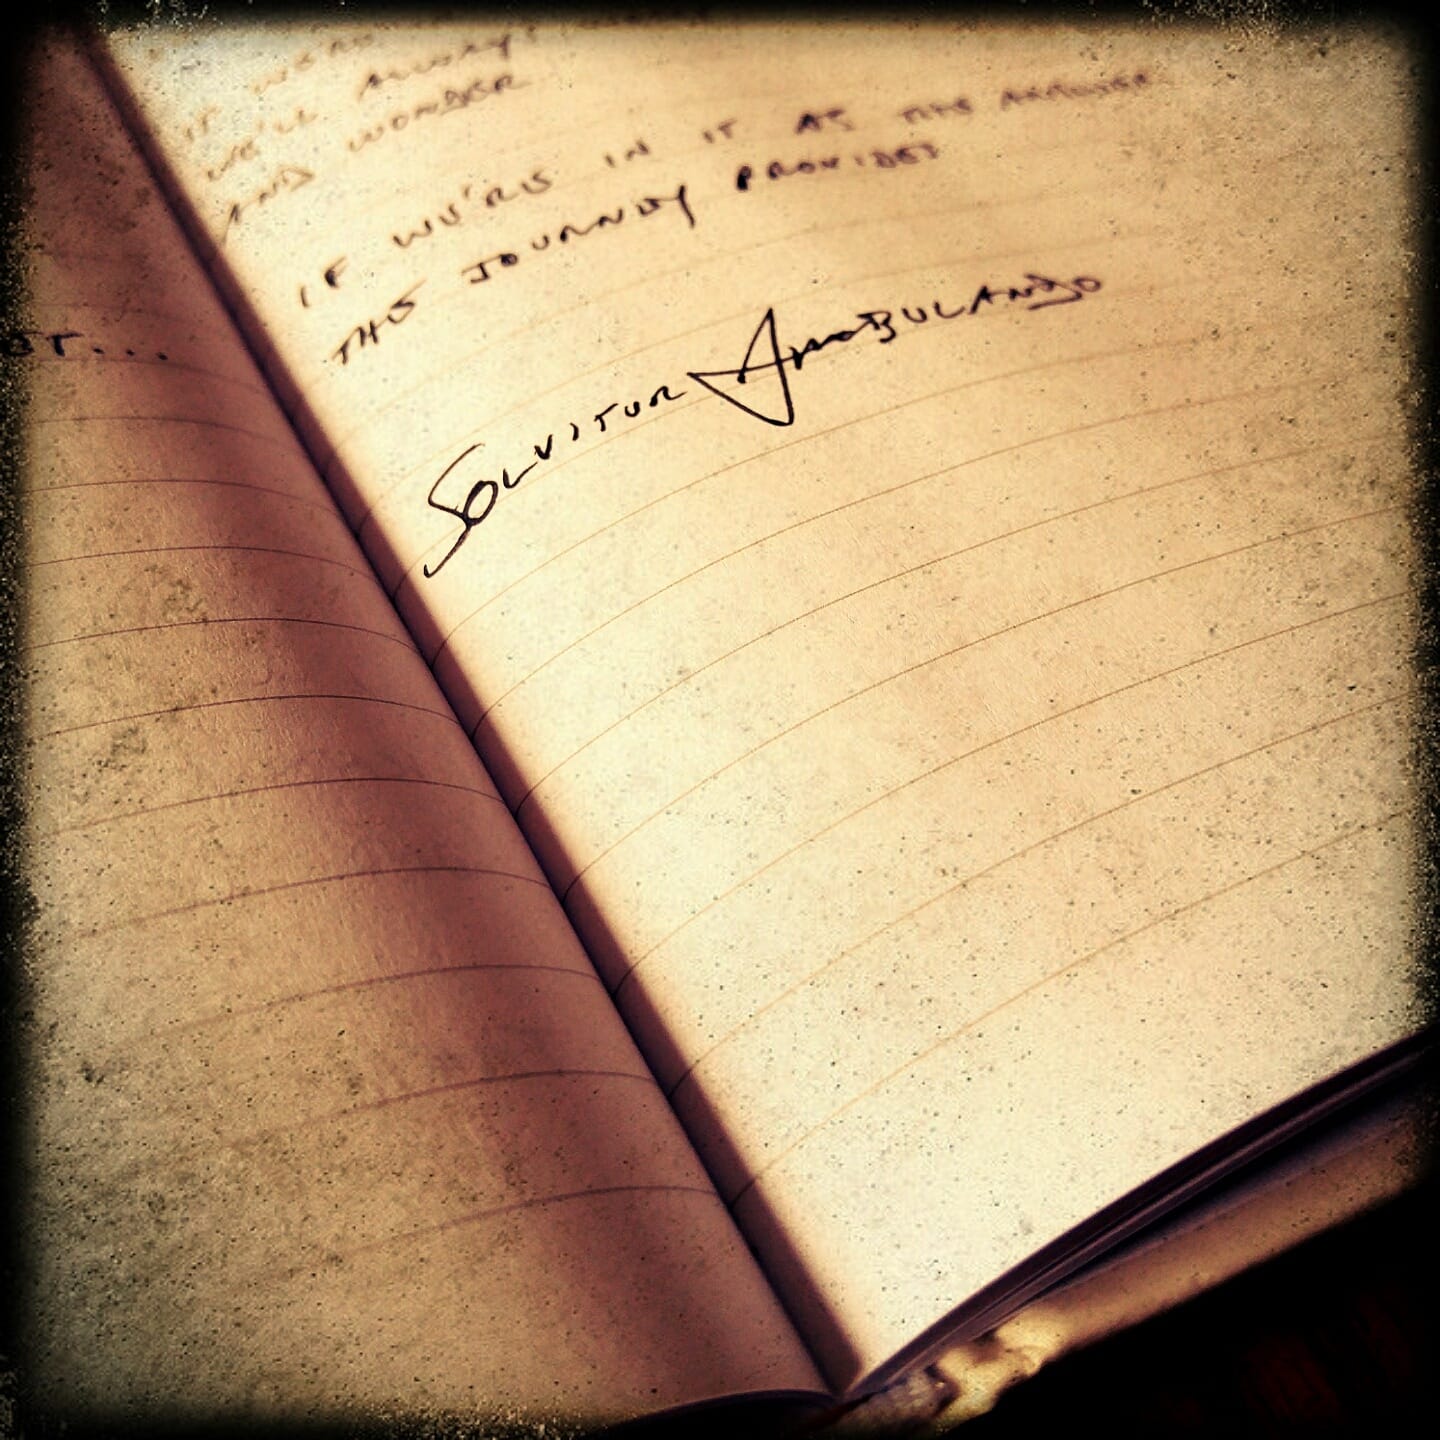 IT WERE
WE'LL ALWAYS
AND WONDER
IF WE'RE IN IT AS THE
THE JOURNEY PROVIDES
SOLVITUR AMBULANDO
ST...